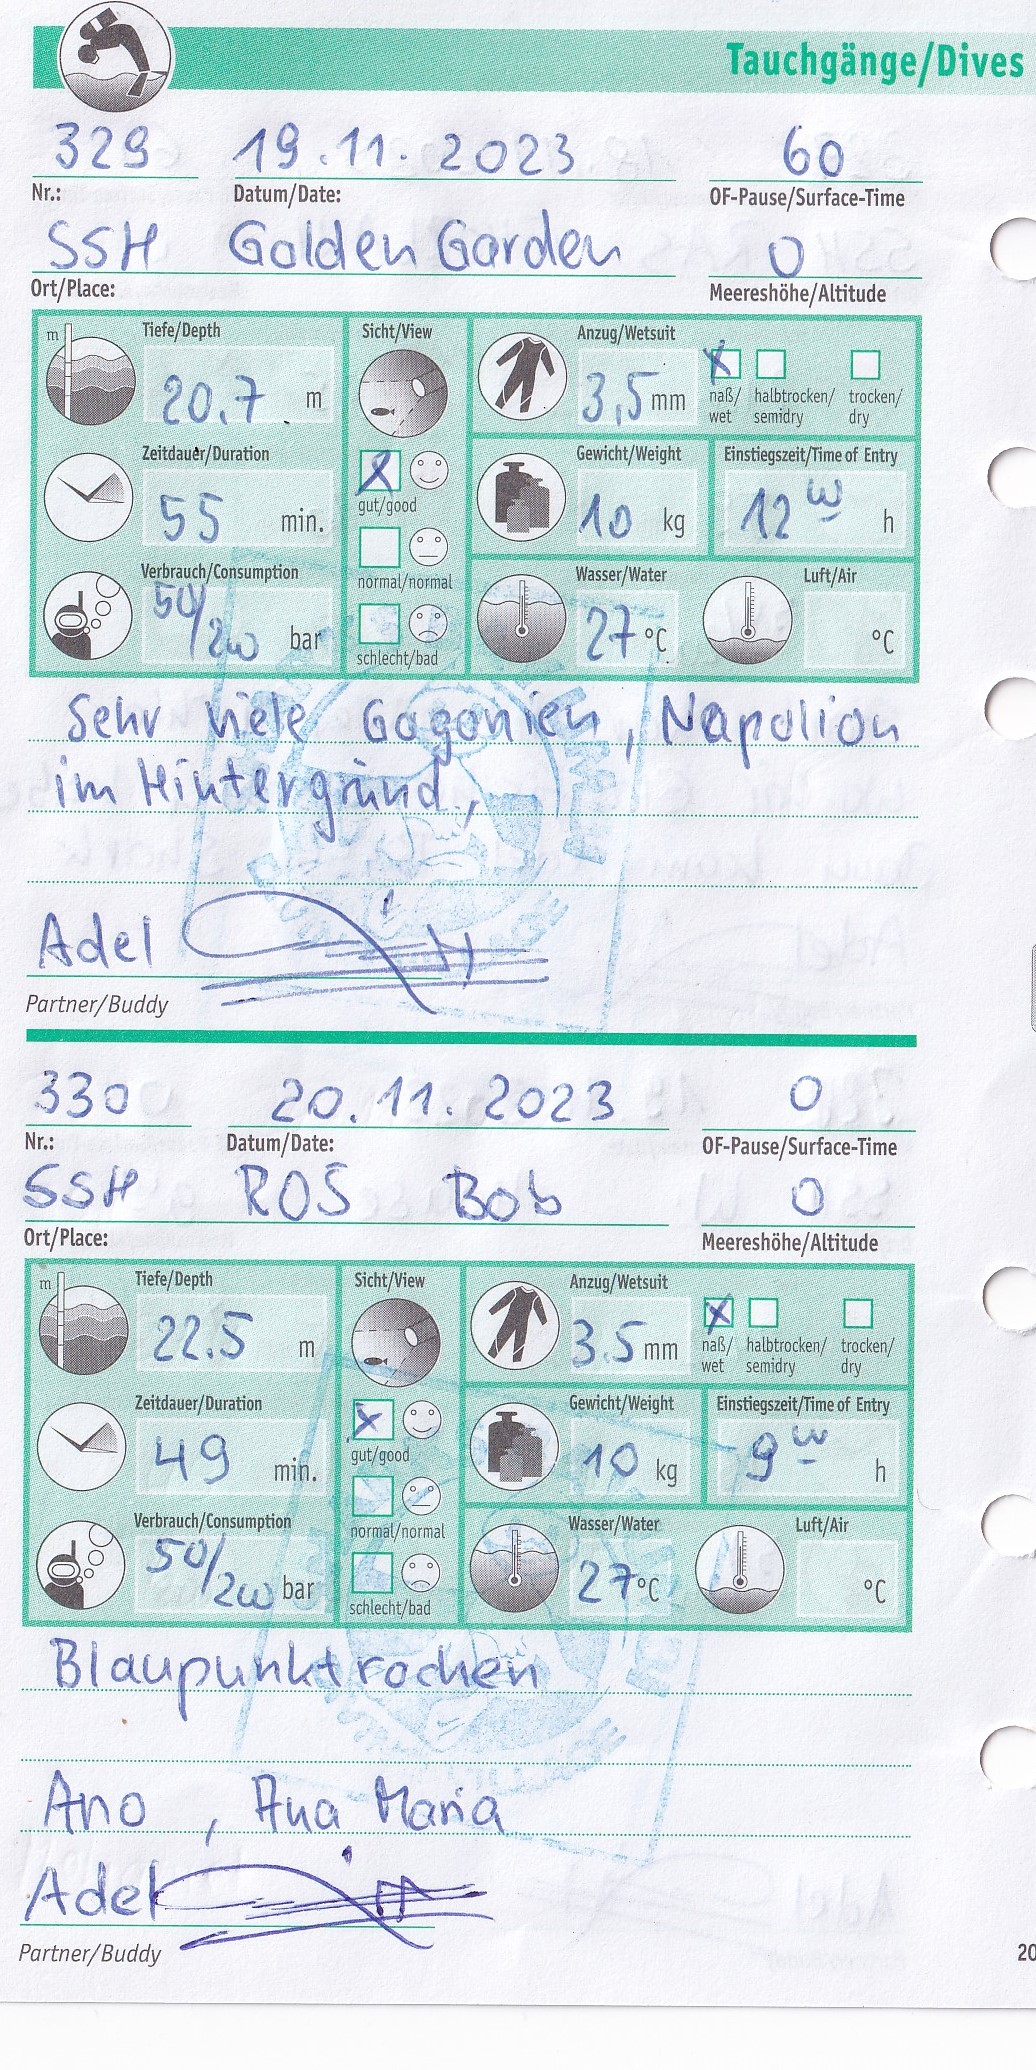 Tauchgänge/Dives
329 19.11.2023 60
Nr.: Datum/Date: OF-Pause/Surface-Time
SSH Golden Garden 0
Ort/Place: Meereshöhe/Altitude
m Tiefe/Depth Sicht/View Anzug/Wetsuit
20.7 m 3,5 mm X
naß/ halbtrocken/ trocken/
wet semidry dry
Zeitdauer/Duration Gewicht/Weight Einstiegszeit/Time of Entry
X
55 min. gut/good 10 kg 12 00 h
Verbrauch/Consumption normal/normal Wasser/Water Luft/Air
50/200 bar 27 °C °C
schlecht/bad
Sehr viele Gogonien, Napolion
im Hintergrund,
Adel
Partner/Buddy
330 20.11.2023 0
Nr.: Datum/Date: OF-Pause/Surface-Time
SSH ROS Bob 0
Ort/Place: Meereshöhe/Altitude
m Tiefe/Depth Sicht/View Anzug/Wetsuit
22.5 m 3.5 mm X
naß/ halbtrocken/ trocken/
wet semidry dry
Zeitdauer/Duration Gewicht/Weight Einstiegszeit/Time of Entry
X
49 min. gut/good 10 kg 9 00 h
Verbrauch/Consumption normal/normal Wasser/Water Luft/Air
50/200 bar 27 °C °C
schlecht/bad
Blaupunktrochen
Ano, Ana Maria
Adel
Partner/Buddy
20